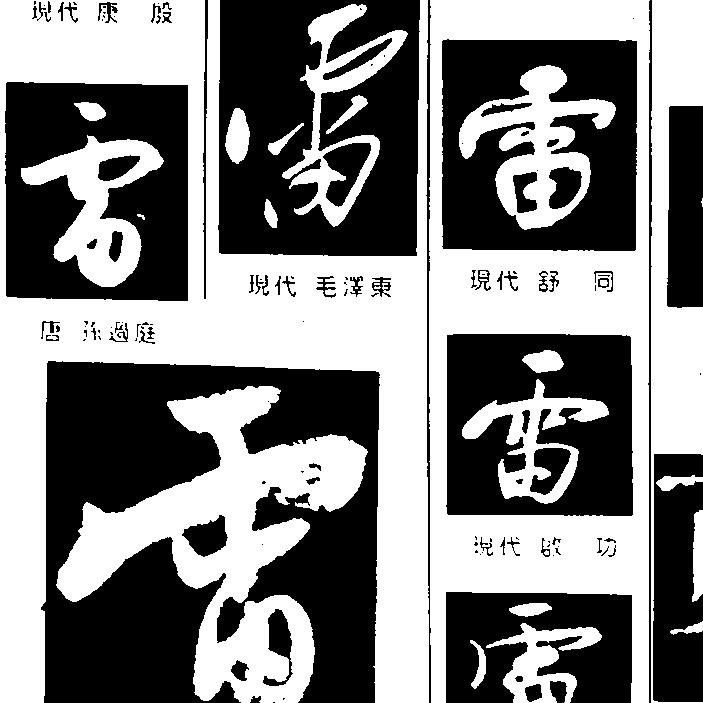 現代 康 殷
雷
唐 孫過庭
雷
雷
現代 毛澤東
雷
現代 舒 同
雷
現代 啟 功
雷